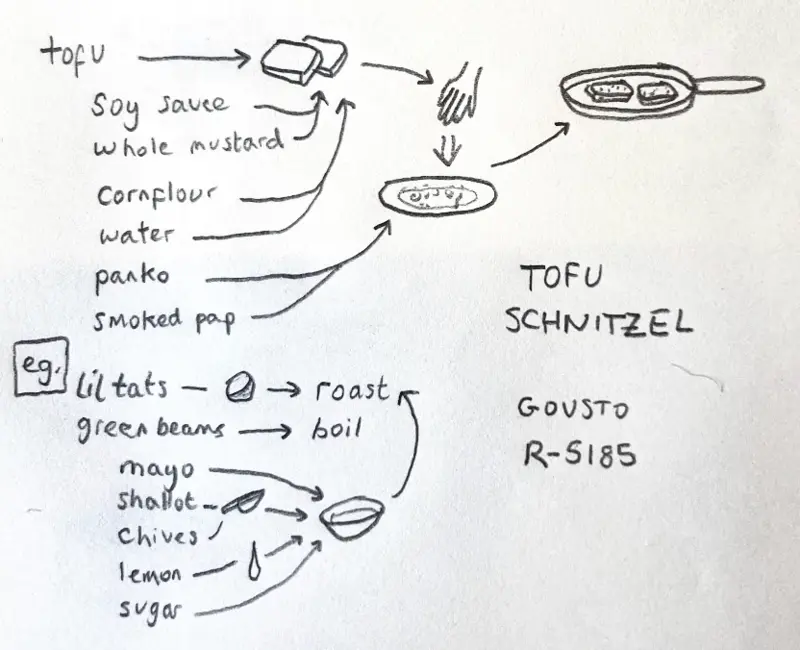 tofu
soy sauce
whole mustard
cornflour
water
panko
smoked pap
TOFU
SCHNITZEL
eg.
lil tats – → roast
green beams → boil
GOUSTO
R-5185
mayo
shallot
chives
lemon
sugar